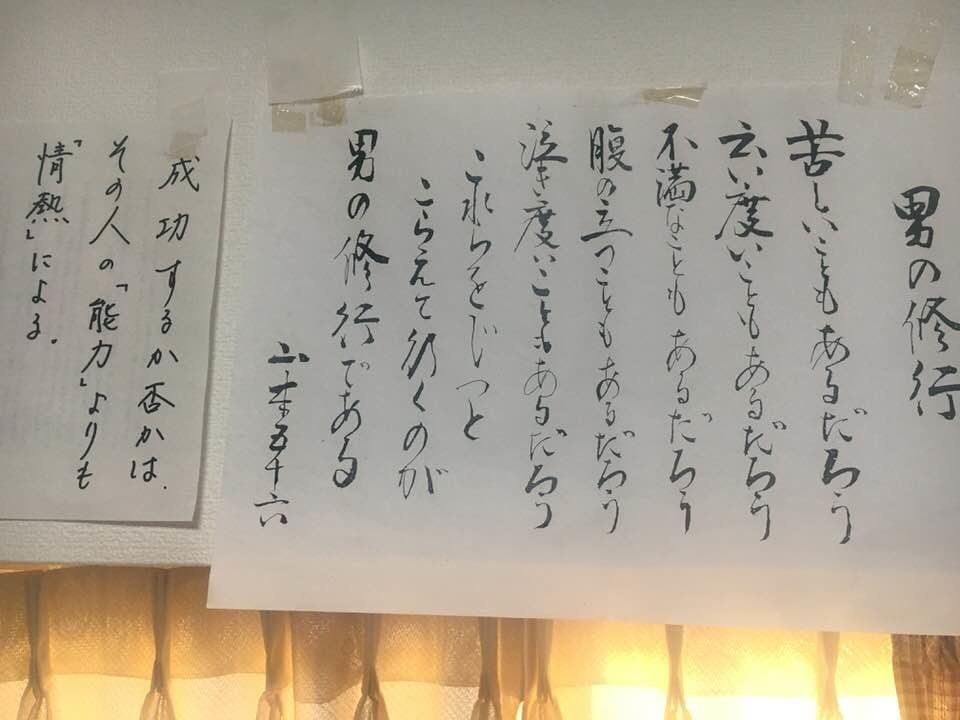 男の修行
苦しいこともあるだろう
云い度いこともあるだろう
不満なこともあるだろう
腹の立つこともあるだろう
泣き度いこともあるだろう
これらをじつと
こらえて行くのが
男の修行である
山本五十六
成功するか否かは、
その人の「能力」よりも
「情熱」による。